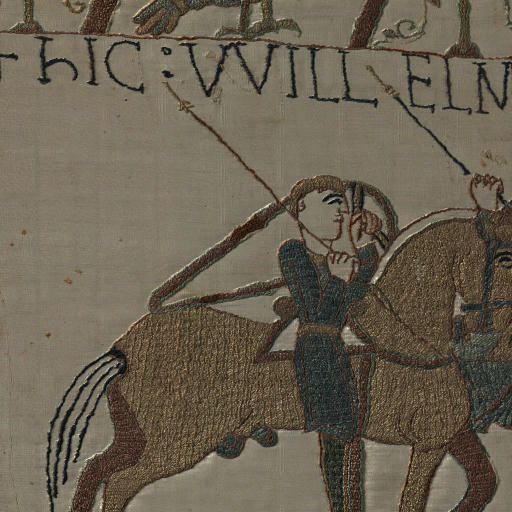 ✝ hIC : VVILLELM